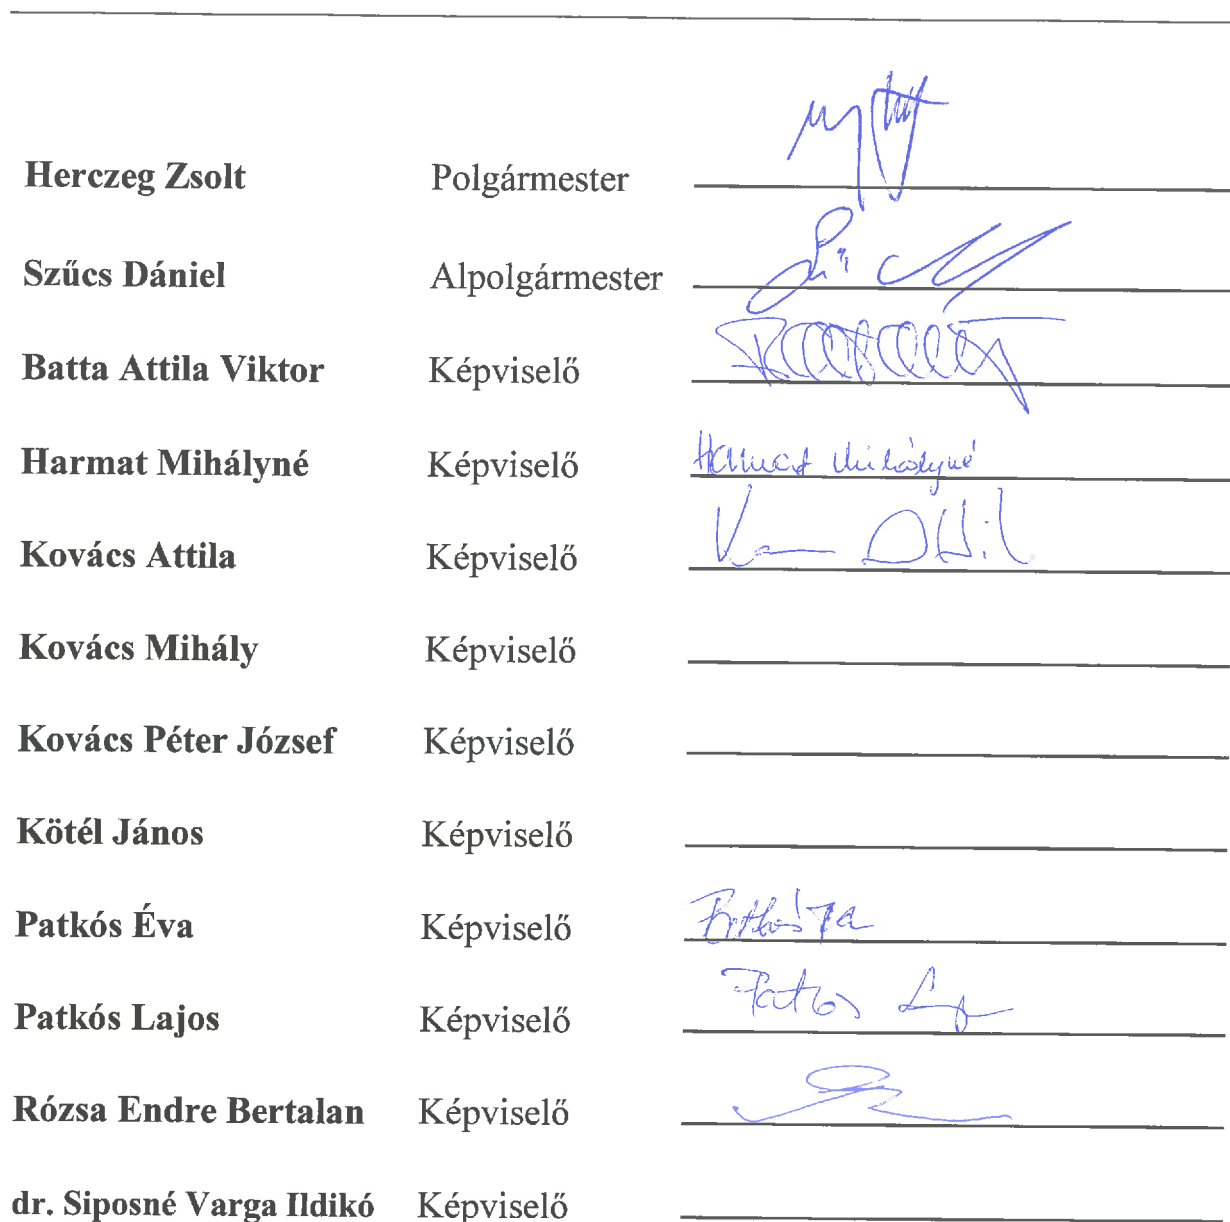 Herczeg Zsolt Polgármester
Szűcs Dániel Alpolgármester
Batta Attila Viktor Képviselő
Harmat Mihályné Képviselő Harmat Mihályné
Kovács Attila Képviselő
Kovács Mihály Képviselő
Kovács Péter József Képviselő
Kötél János Képviselő
Patkós Éva Képviselő Patkós Éva
Patkós Lajos Képviselő Patkós
Rózsa Endre Bertalan Képviselő
dr. Siposné Varga Ildikó Képviselő